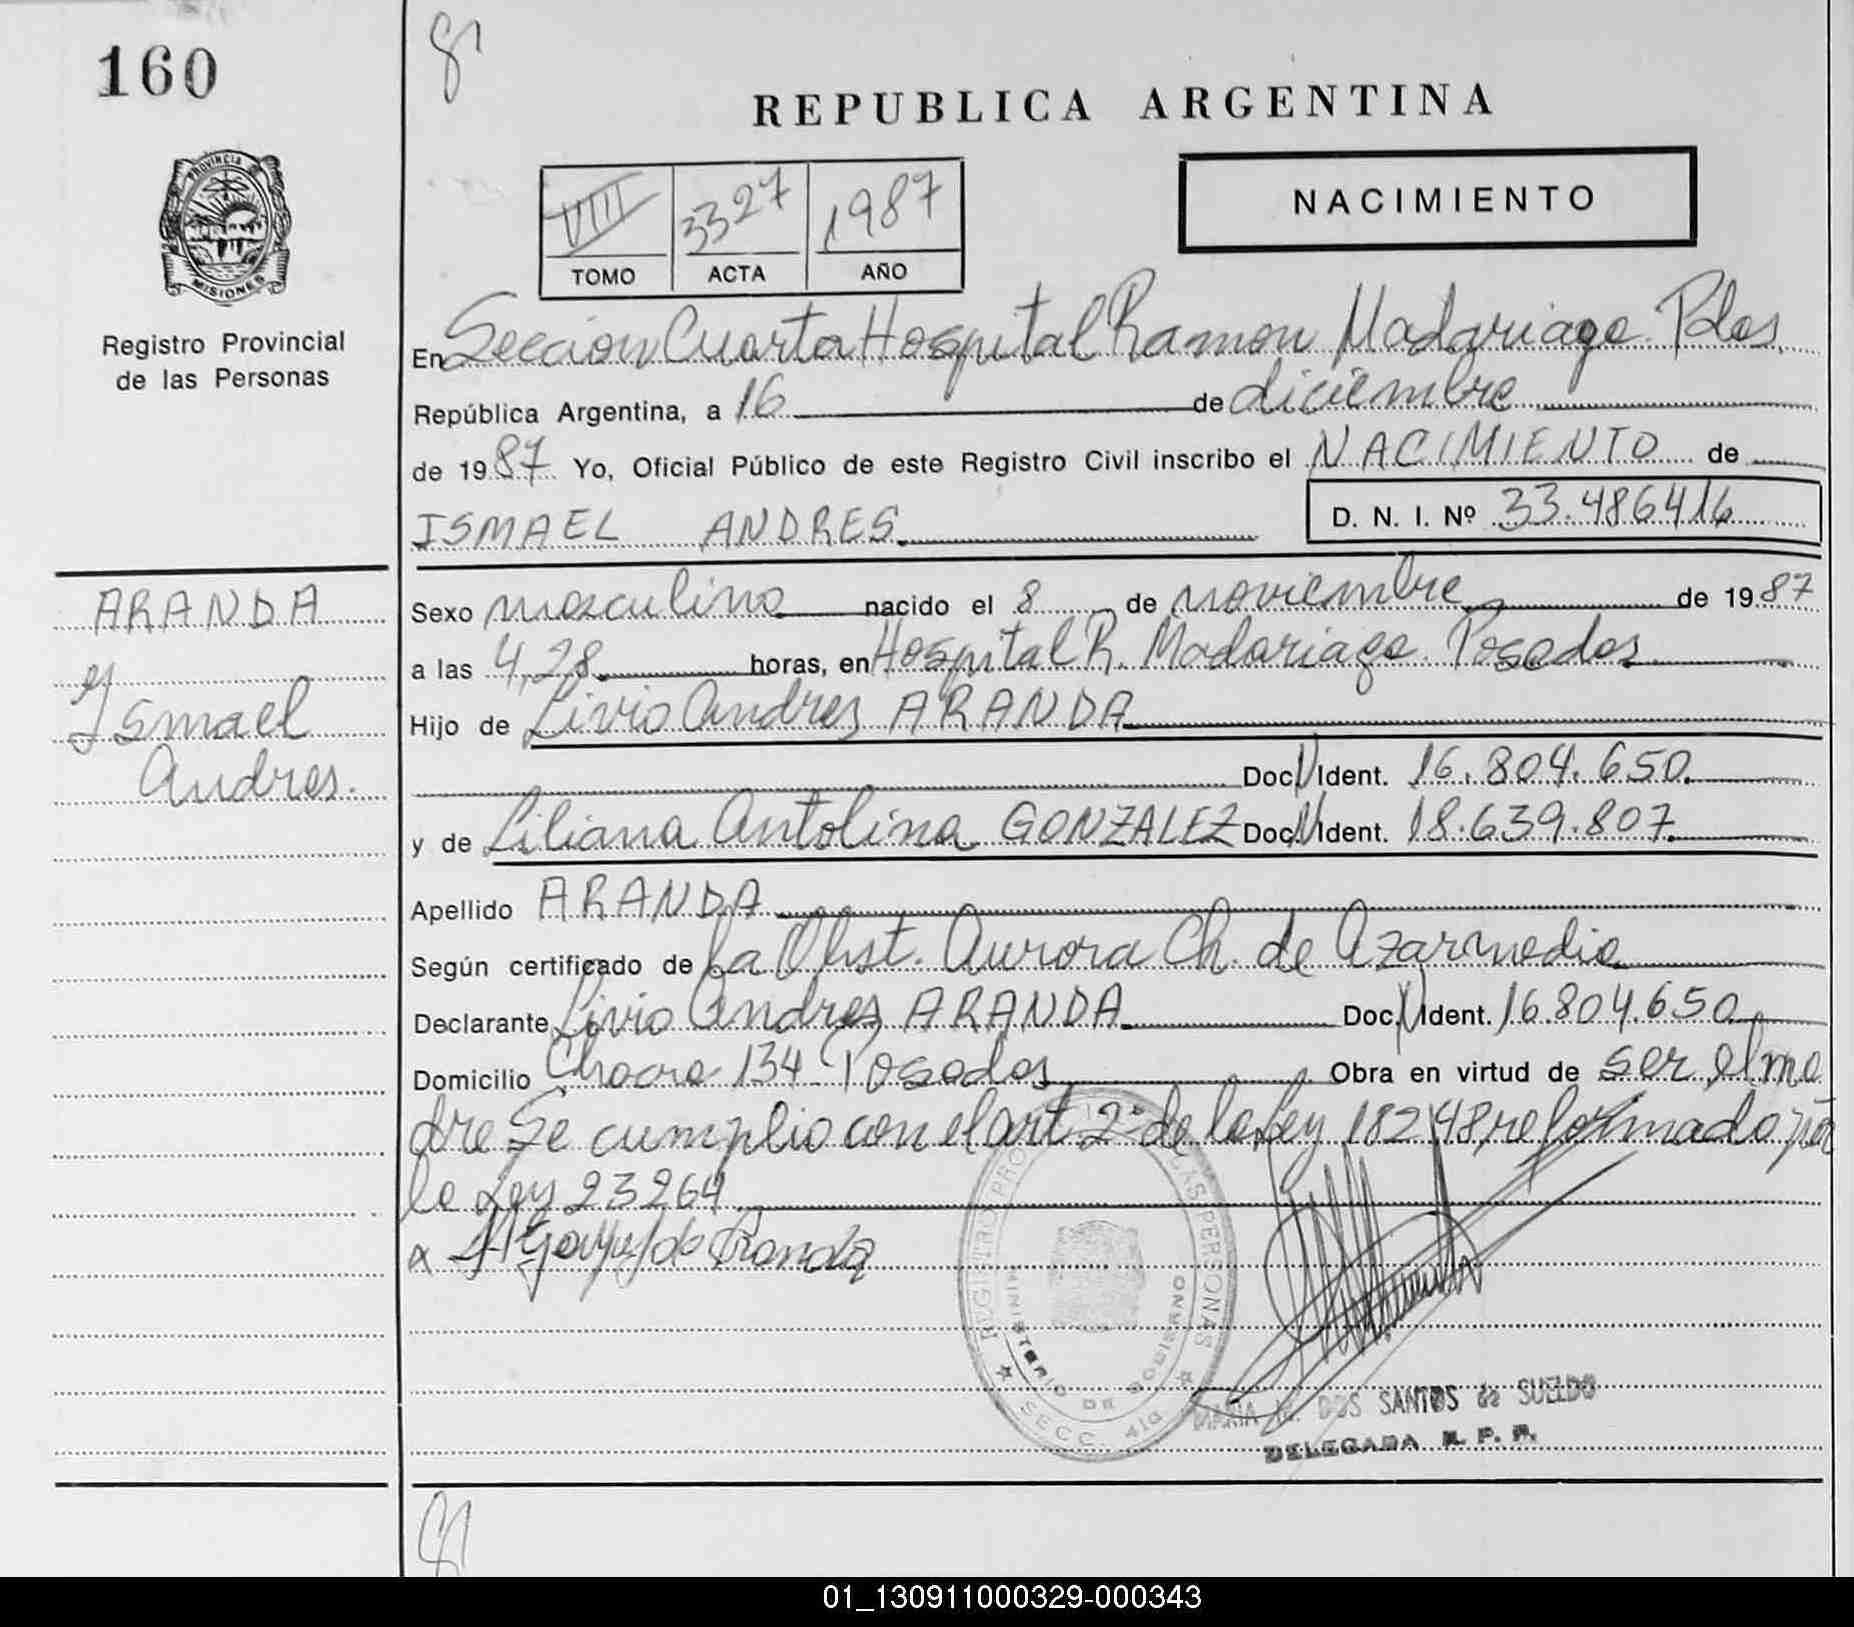 160
REPUBLICA ARGENTINA
PROVINCIA
MISIONES
Registro Provincial
de las Personas
VIII 3327 1987
TOMO ACTA AÑO
NACIMIENTO
En Seccion Cuarta Hospital Ramon Madariaga. Pdas.
República Argentina, a 16 de diciembre
de 1987. Yo, Oficial Público de este Registro Civil inscribo el NACIMIENTO de
ISMAEL ANDRES
D. N. I. Nº 33.486416
ARANDA
Ismael
Andres.
Sexo masculino nacido el 8 de noviembre de 1987
a las 4,28 horas, en Hospital R. Madariaga. Posadas
Hijo de Livio Andres ARANDA
Doc. N Ident. 16.804.650.
y de Liliana Antolina GONZALEZ Doc. N Ident. 18.639.807.
Apellido ARANDA
Según certificado de La Obst. Aurora Ch. de Azarmedia
Declarante Livio Andres ARANDA Doc. N Ident. 16.804.650
Domicilio Chacra 134 Posadas Obra en virtud de ser el pa
dre Se cumplio con el art. 2º de la Ley 18248 reformado por
la Ley 23264
REGISTRO PERSONAS
MINISTERIO DE GOBIERNO
SECC. 4ta
MARIA DOS SANTOS de SUELDO
DELEGADA R. P. P.
01_130911000329-000343